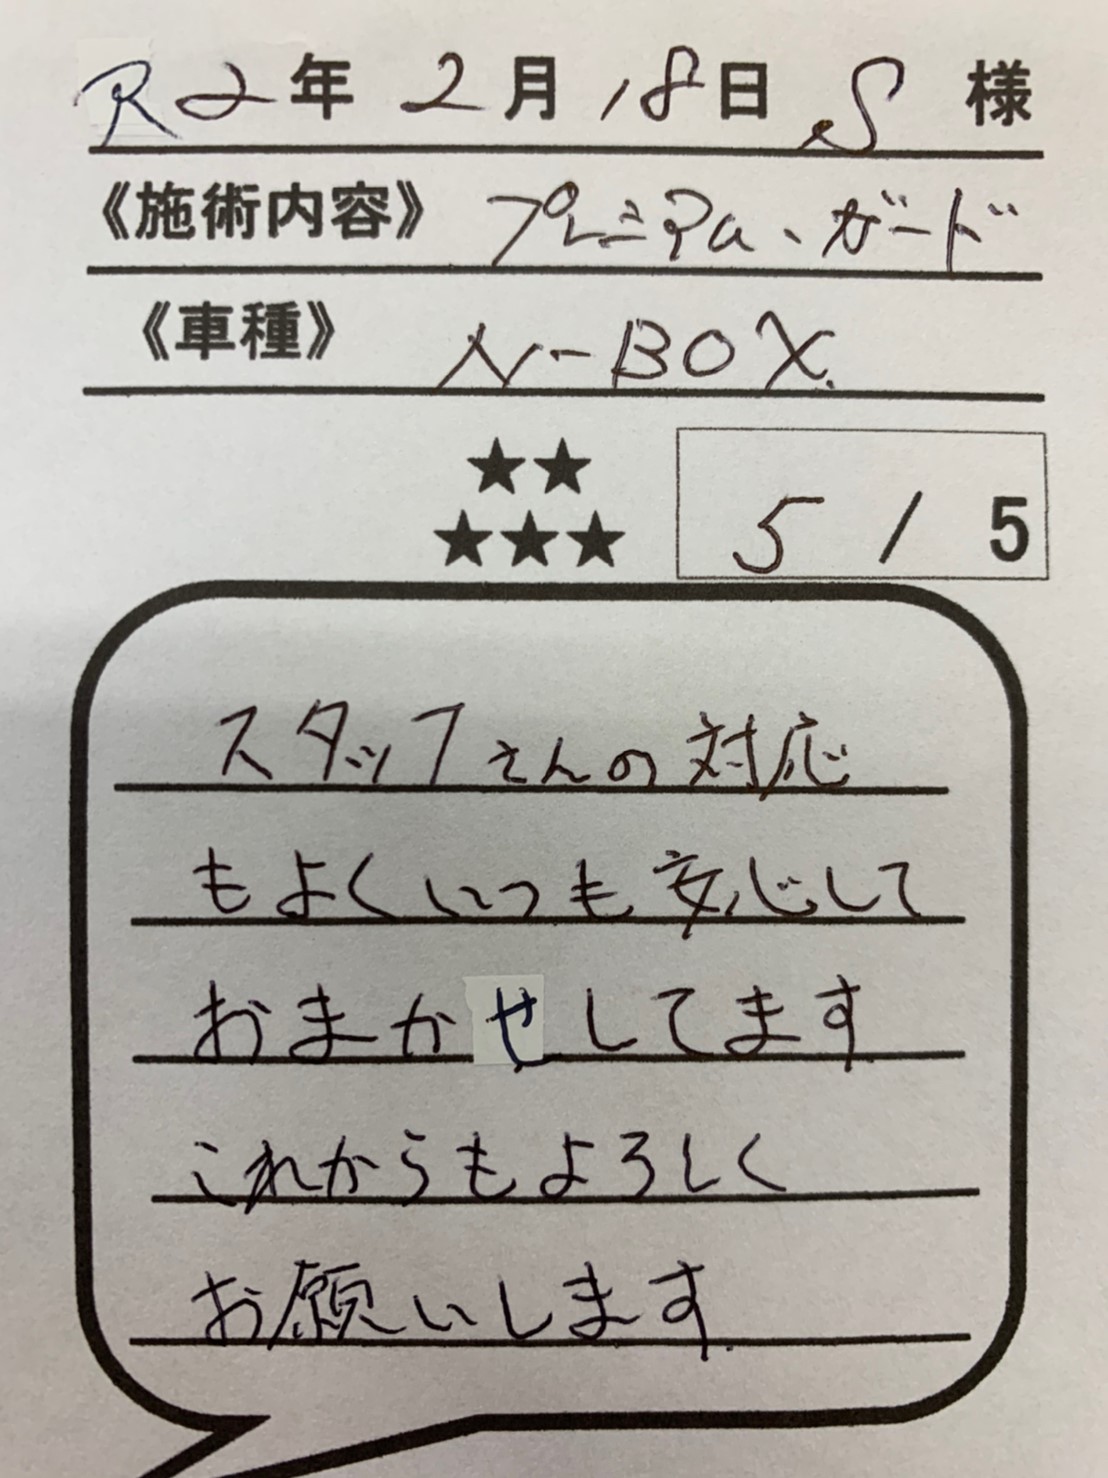 R2年 2月 18日 S 様
《施術内容》 プレミアム、ガード
《車種》 N-BOX.
★★
★★★ 5 / 5
スタッフさんの対応
もよくいつも安心して
おまかせしてます
これからもよろしく
お願いします.